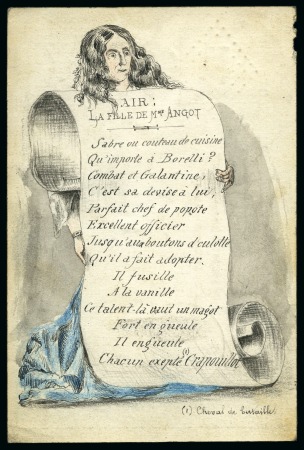 AIR:
LA FILLE DE Mme ANGOT
Sabre ou couteau de cuisine
Qu'importe à Borelli?
Combat et Galantine,
C'est sa devise à lui,
Parfait chef de popote
Excellent officier
Jusqu'aux boutons d'culotte
Qu'il a fait adopter.
Il fusille
A la vanille
Ce talent-là vaut un magot
Fort en gueule
Il engueule
Chacun exepté Crapouillot
(1) Cheval de